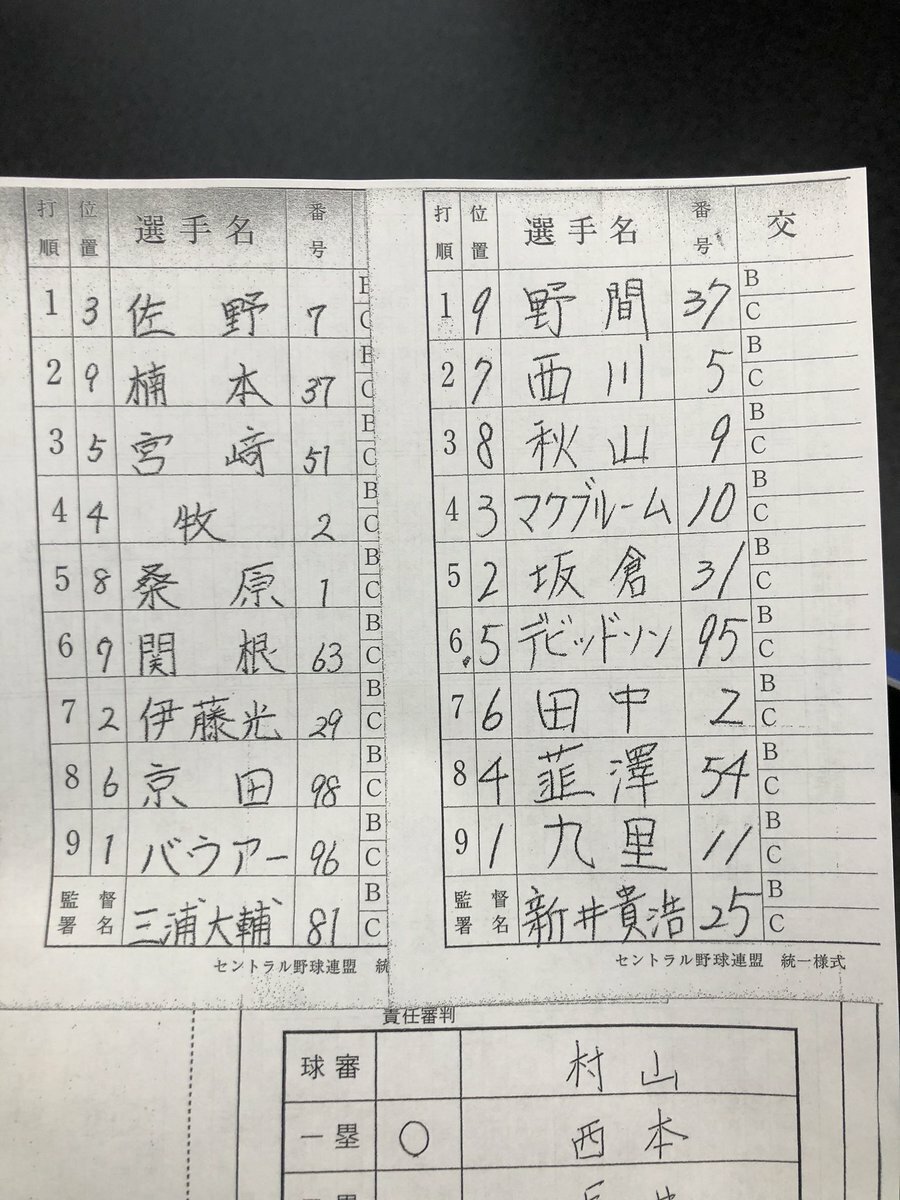 打順 位置 選手名 番号
1 3 佐野 7 B C
2 9 楠本 37 B C
3 5 宮﨑 51 B C
4 4 牧 2 B C
5 8 桑原 1 B C
6 7 関根 63 B C
7 2 伊藤光 29 B C
8 6 京田 98 B C
9 1 バウアー 96 B C
監督署名 三浦大輔 81 B C
セントラル野球連盟 統
打順 位置 選手名 番号 交
1 9 野間 37 B C
2 7 西川 5 B C
3 8 秋山 9 B C
4 3 マクブルーム 10 B C
5 2 坂倉 31 B C
6 5 デビッドソン 95 B C
7 6 田中 2 B C
8 4 韮澤 54 B C
9 1 九里 11 B C
監督署名 新井貴浩 25 B C
セントラル野球連盟 統一様式
責任審判
球審 村山
一塁 ○ 西本